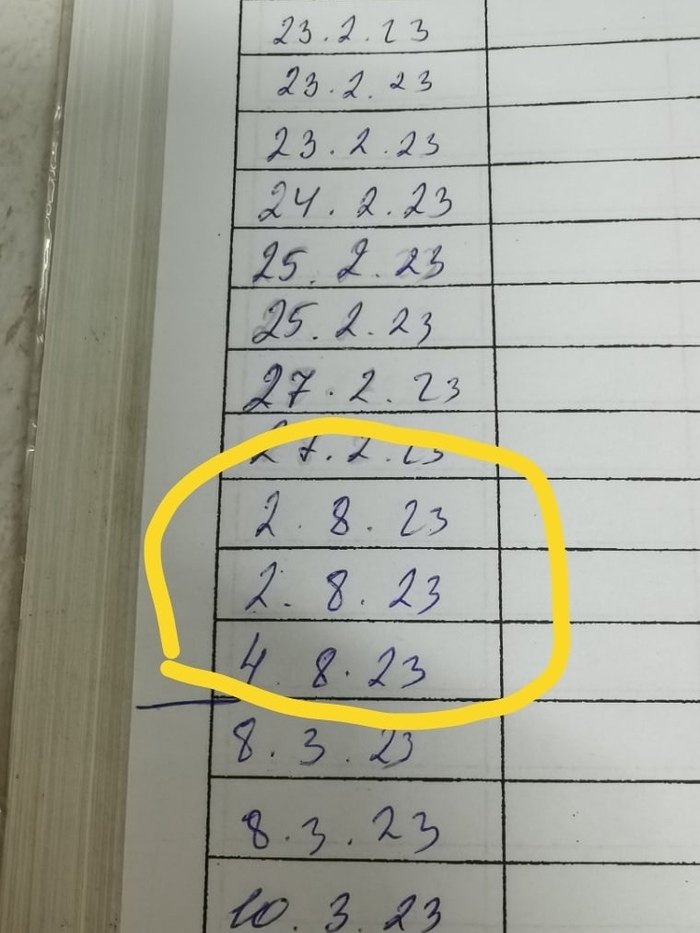 23.2.23
23.2.23
23.2.23
24.2.23
25.2.23
25.2.23
27.2.23
27.2.23
2.8.23
2.8.23
4.8.23
8.3.23
8.3.23
10.3.23